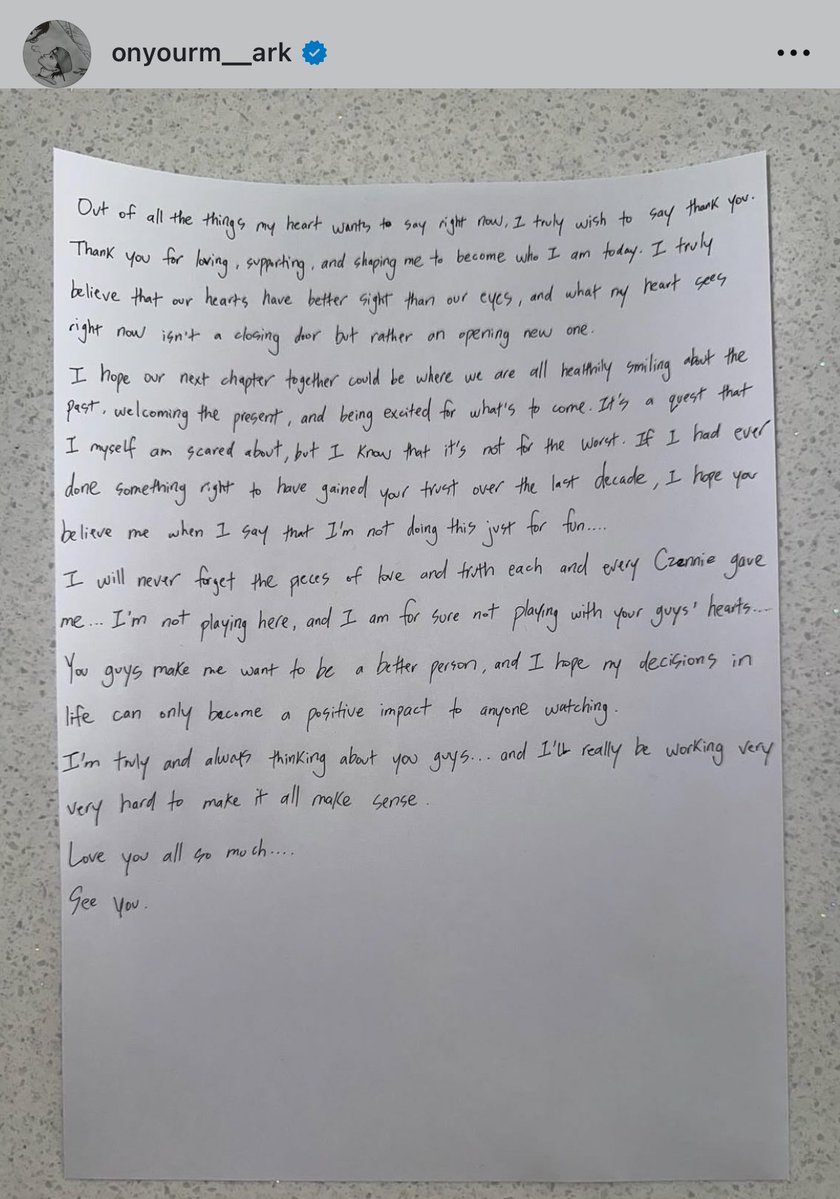 onyourm__ark
Out of all the things my heart wants to say right now, I truly wish to say thank you.
Thank you for loving, supporting, and shaping me to become who I am today. I truly
believe that our hearts have better sight than our eyes, and what my heart sees
right now isn't a closing door but rather an opening new one.
I hope our next chapter together could be where we are all healthily smiling about the
past, welcoming the present, and being excited for what's to come. It's a quest that
I myself am scared about, but I know that it's not for the worst. If I had ever
done something right to have gained your trust over the last decade, I hope you
believe me when I say that I'm not doing this just for fun....
I will never forget the pieces of love and truth each and every Czennie gave
me... I'm not playing here, and I am for sure not playing with your guys' hearts....
You guys make me want to be a better person, and I hope my decisions in
life can only become a positive impact to anyone watching.
I'm truly and always thinking about you guys... and I'll really be working very
very hard to make it all make sense.
Love you all so much....
See you.